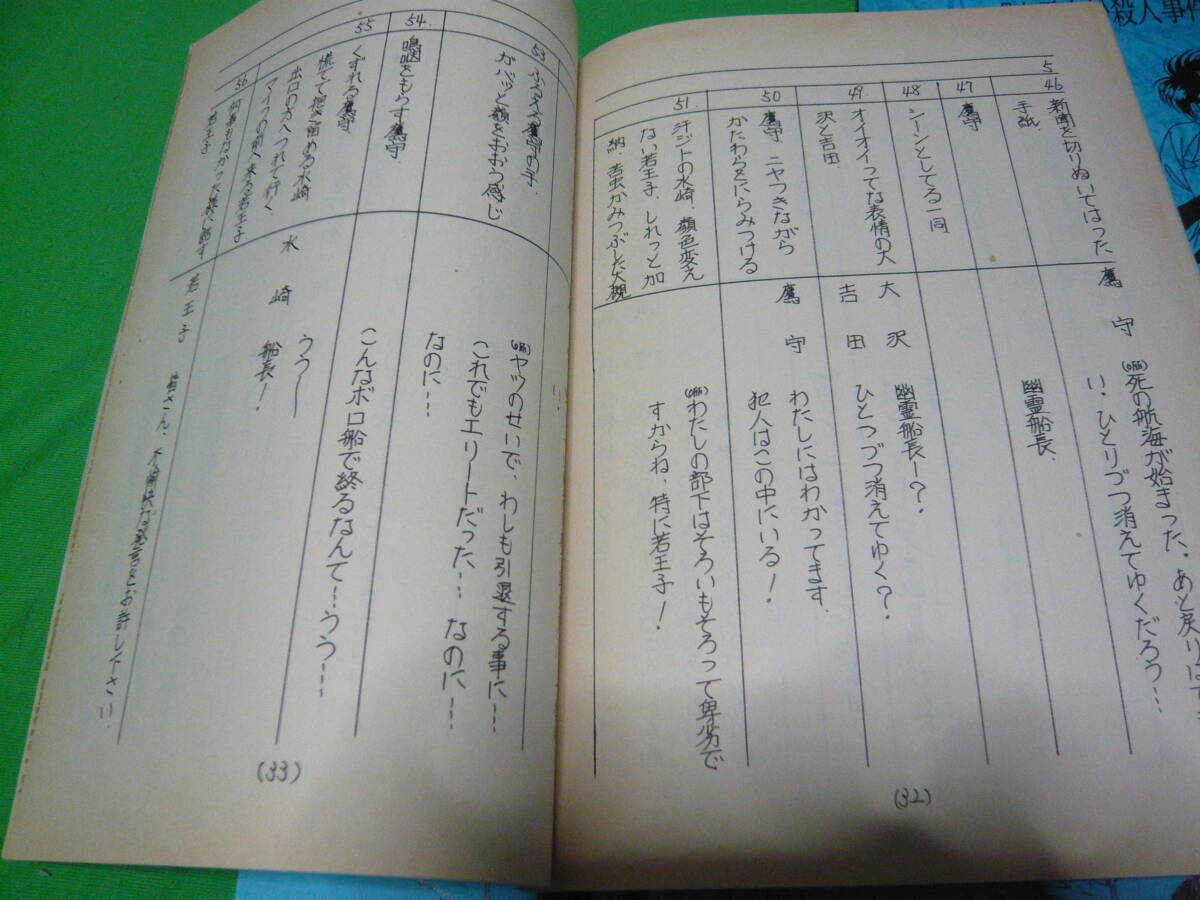 殺人事件
5
46
新聞を切りぬいてはった
手紙、
鷹守
(OFF)死の航海が始まった、あと戻りは
い、ひとりづつ消えてゆくだろう…
幽霊船長、
47
鷹守
48
シーンとしてる一同
49
オイオイってな表情の大
沢と吉田、
大沢
幽霊船長ー?、
吉田
ひとつづつ消えてゆく?、
50
鷹守、ニヤつきながら
かたわらをにらみつける
鷹守
わたしにはわかってます、
犯人はこの中にいる!、
51
汗ジトの水崎、顔色変え
ない若王子、しれっと加
納、苦虫かみつぶした大槻
(OFF)わたしの部下はそろいもそろって卑劣で
すからね、特に若王子!、
(32)
53
ぶるえる鷹守の手、
がバッと顔をおおう感じ
(OFF)ヤツのせいで、わしも引退する事に…
これでもエリートだった…なのに…
なのに…
54
嗚咽をもらす鷹守
こんなボロ船で終るなんて…うう…
うう—
55
くずれる鷹守、
慌てて抱き留める水崎
出口の方へつれて行く
マイクの前へ来る若王子
水崎
船長!、
56
何事もなかった様に話す
若王子
若王子
皆さん、
をお許し下さい、
(33)